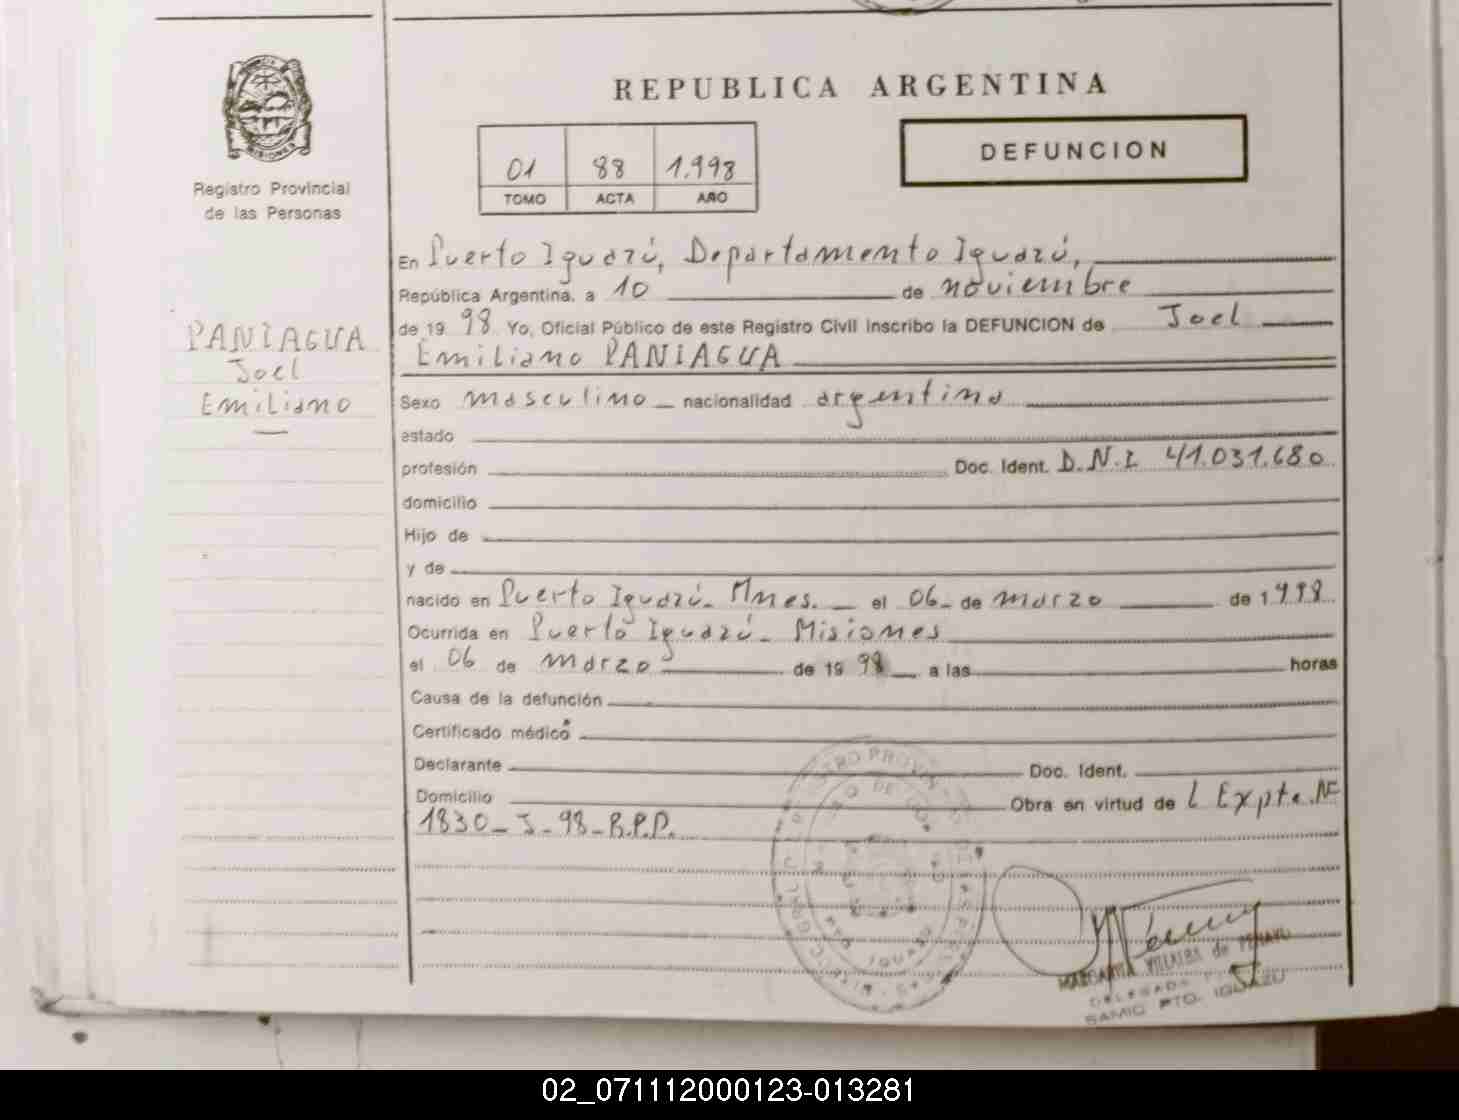 REPUBLICA ARGENTINA
DEFUNCION
01 88 1.998
TOMO ACTA AÑO
Registro Provincial
de las Personas
PANIAGUA
Joel
Emiliano
En Puerto Iguazú, Departamento Iguazú,
República Argentina, a 10 de noviembre
de 19 98 Yo, Oficial Público de este Registro Civil inscribo la DEFUNCION de Joel
Emiliano PANIAGUA
Sexo masculino nacionalidad argentina
estado
profesión Doc. Ident. D.N.I. 41.031.680
domicilio
Hijo de
y de
nacido en Puerto Iguazú - Mnes. el 06 de marzo de 1998
Ocurrida en Puerto Iguazú - Misiones
el 06 de marzo de 19 98 a las horas
Causa de la defunción
Certificado médico
Declarante Doc. Ident.
Domicilio Obra en virtud de l Expte. Nº
1830 - J - 98 - R.P.P.
MARGARITA VILLALBA de
DELEGADA
SAMIC PTO. IGUAZU
02_071112000123-013281